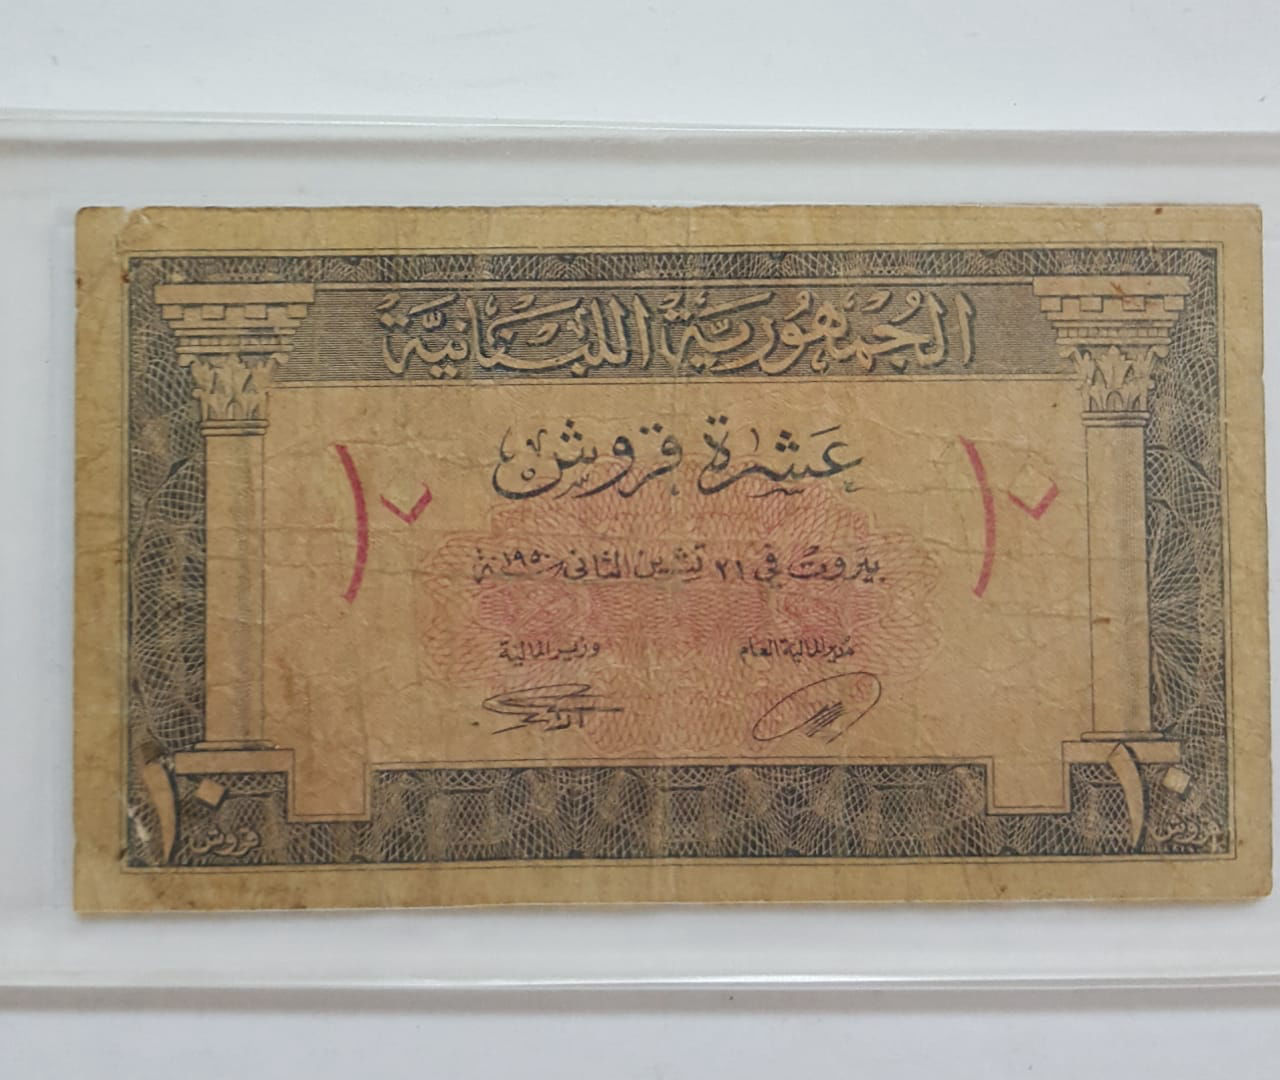 الجُمْهُوريَّة اللبْنَانيَّة
عَشرة قروش
١٠
١٠
بيروت في ٢١ تشرين الثاني سنة ١٩٥٠
مدير المالية العام
وزير المالية
١٠ قروش
١٠ قروش